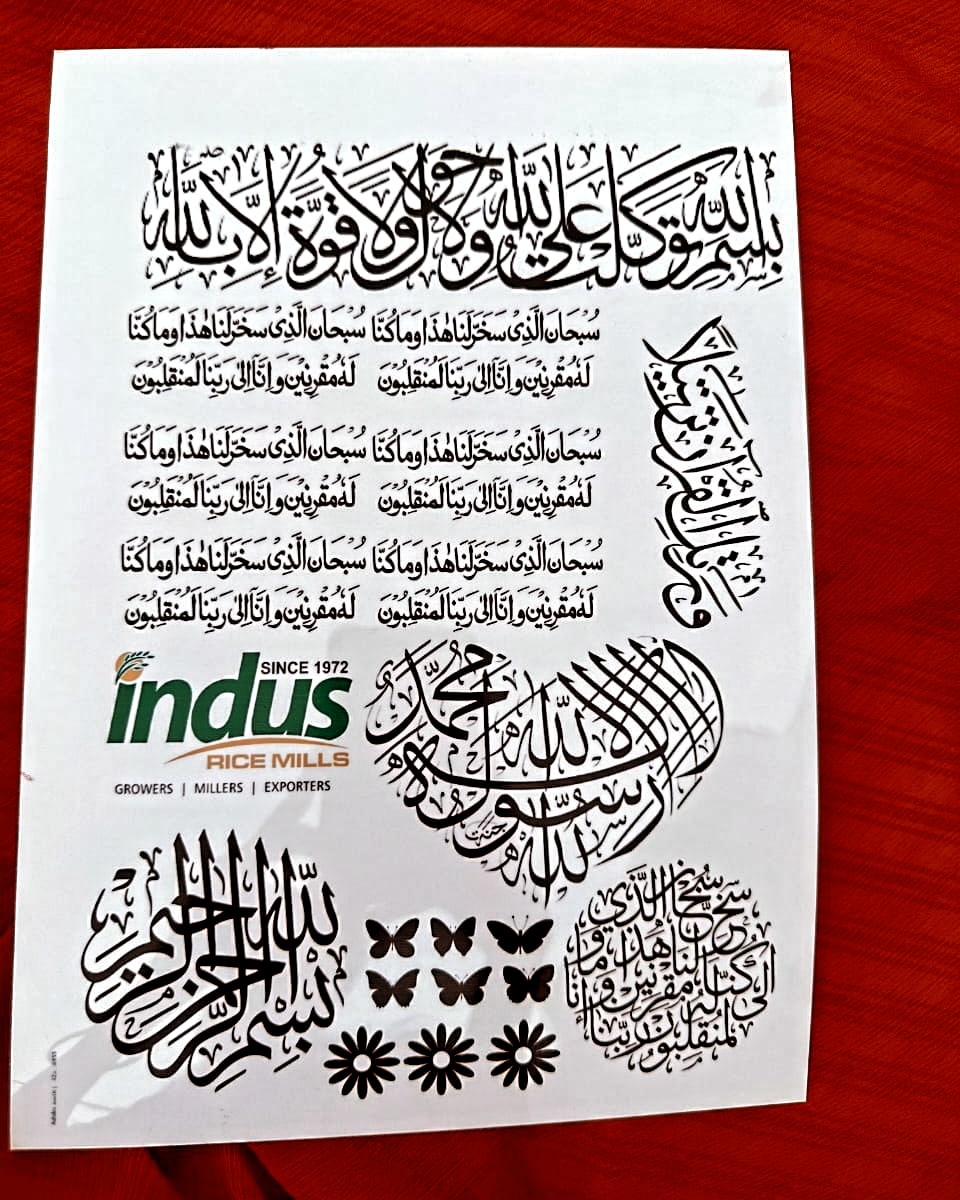 بِسْمِ اللهِ تَوَكَّلْتُ عَلَى اللهِ وَلَا حَوْلَ وَلَا قُوَّةَ إِلَّا بِاللهِ
سُبْحَانَ الَّذِىْ سَخَّرَلَنَا هٰذَا وَمَا كُنَّا
لَهٗ مُقْرِنِيْنَ وَ اِنَّآ اِلىٰ رَبِّنَا لَمُنْقَلِبُوْنَ
سُبْحَانَ الَّذِىْ سَخَّرَلَنَا هٰذَا وَمَا كُنَّا
لَهٗ مُقْرِنِيْنَ وَ اِنَّآ اِلىٰ رَبِّنَا لَمُنْقَلِبُوْنَ
سُبْحَانَ الَّذِىْ سَخَّرَلَنَا هٰذَا وَمَا كُنَّا
لَهٗ مُقْرِنِيْنَ وَ اِنَّآ اِلىٰ رَبِّنَا لَمُنْقَلِبُوْنَ
سُبْحَانَ الَّذِىْ سَخَّرَلَنَا هٰذَا وَمَا كُنَّا
لَهٗ مُقْرِنِيْنَ وَ اِنَّآ اِلىٰ رَبِّنَا لَمُنْقَلِبُوْنَ
سُبْحَانَ الَّذِىْ سَخَّرَلَنَا هٰذَا وَمَا كُنَّا
لَهٗ مُقْرِنِيْنَ وَ اِنَّآ اِلىٰ رَبِّنَا لَمُنْقَلِبُوْنَ
سُبْحَانَ الَّذِىْ سَخَّرَلَنَا هٰذَا وَمَا كُنَّا
لَهٗ مُقْرِنِيْنَ وَ اِنَّآ اِلىٰ رَبِّنَا لَمُنْقَلِبُوْنَ
وَرَتِّلِ الْقُرْآنَ تَرْتِيلًا
لا إله إلا الله محمد رسول الله
SINCE 1972
indus
RICE MILLS
GROWERS | MILLERS | EXPORTERS
بسم الله الرحمن الرحيم
سبحان الذي سخر
لنا هذا وما
كنا له مقرنين وإنا
الى ربنا
لمنقلبون